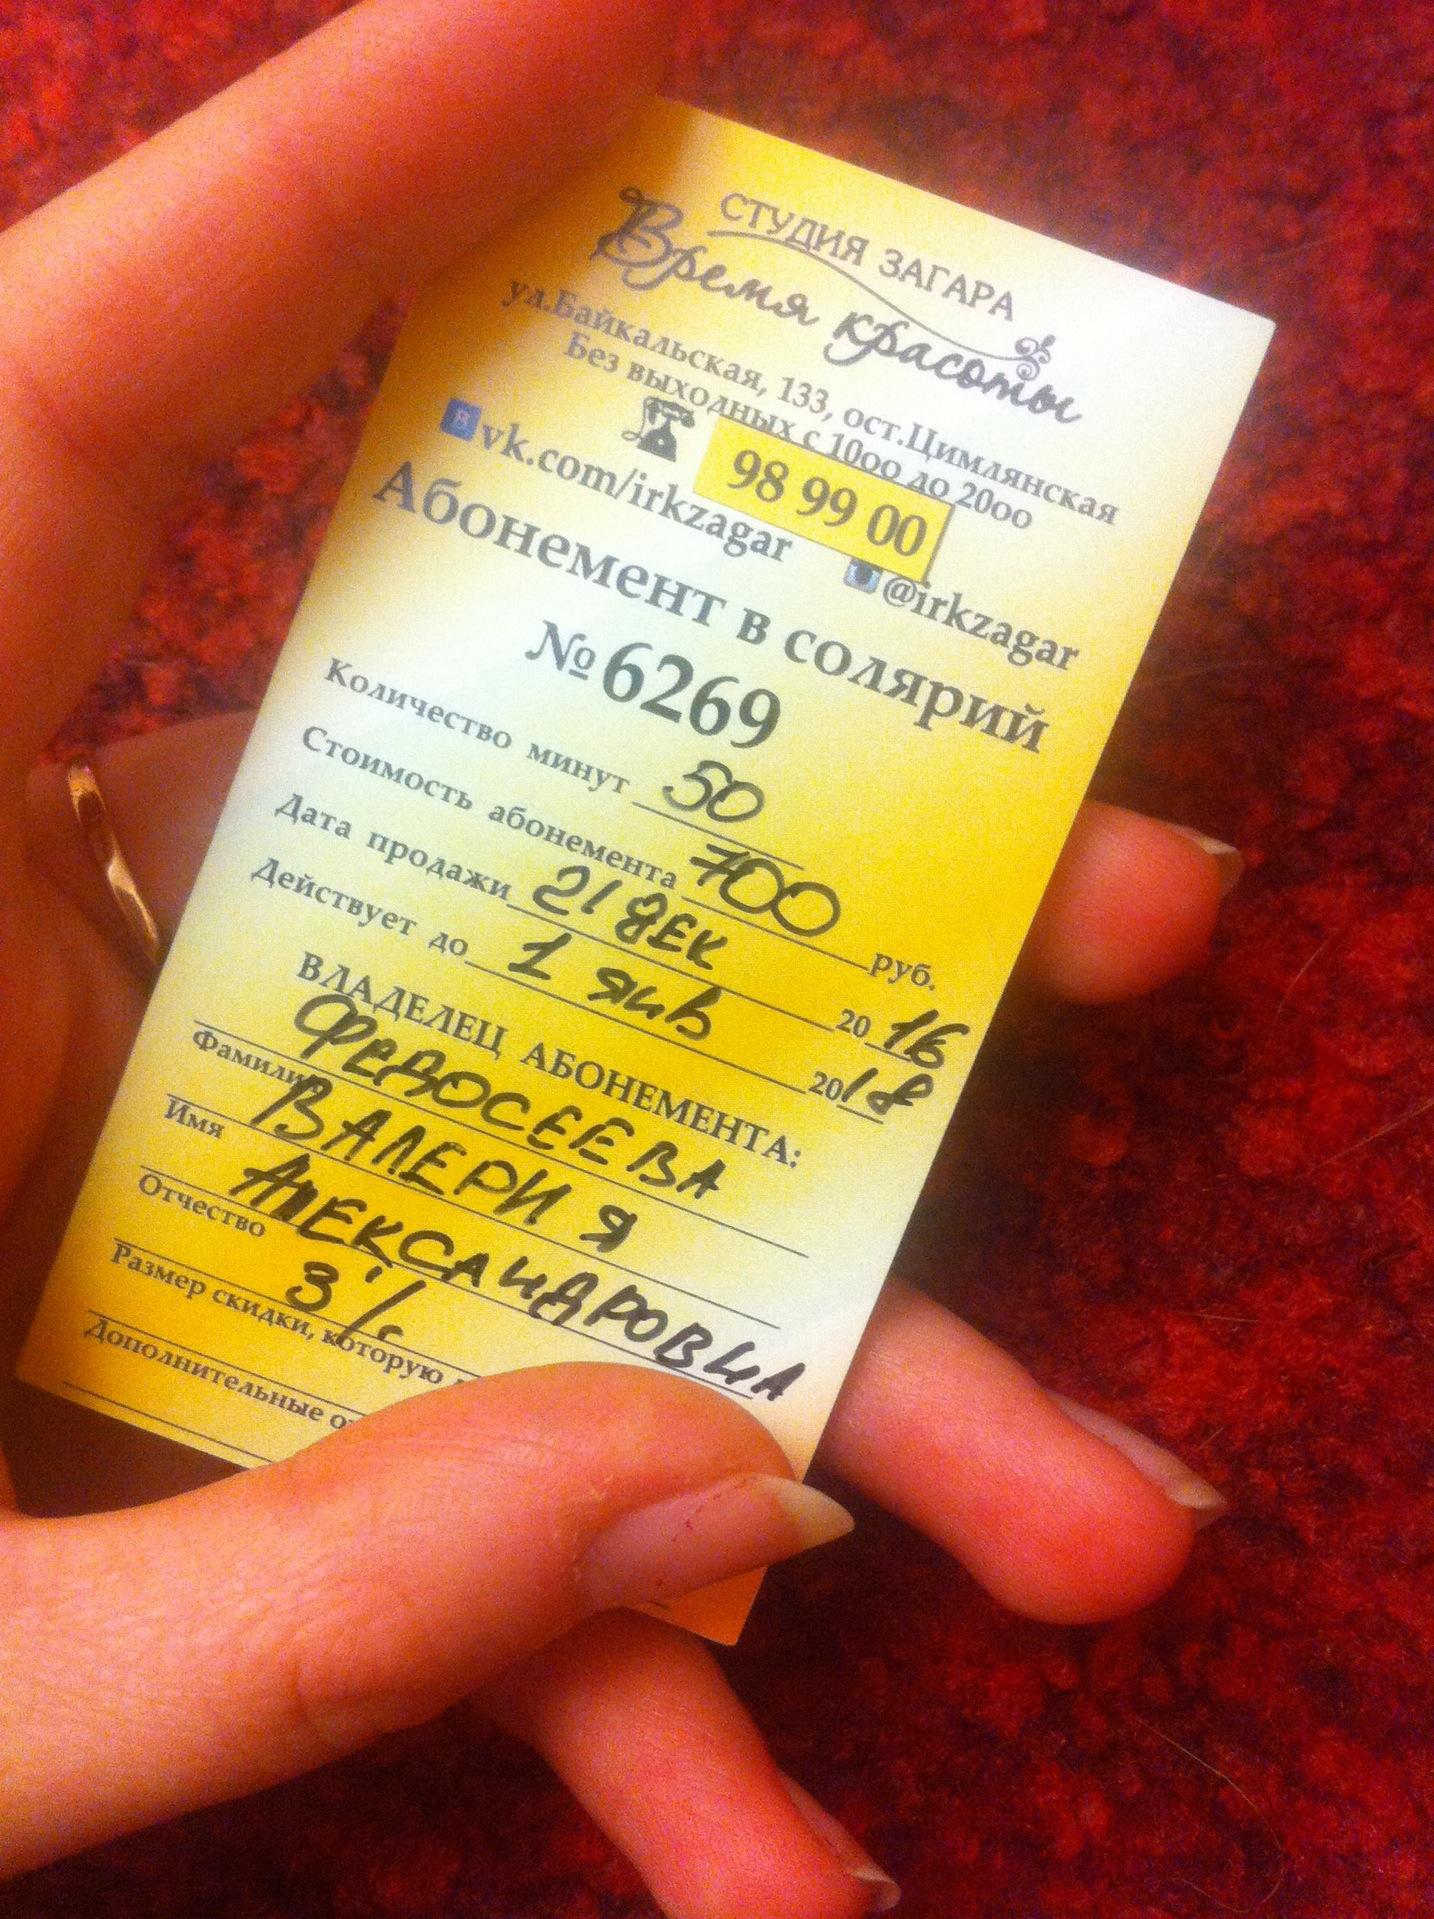 СТУДИЯ ЗАГАРА
Время красоты
ул.Байкальская, 133, ост.Цимлянская
Без выходных с 10оо до 20оо
98 99 00
vk.com/irkzagar @irkzagar
Абонемент в солярий
№6269
Количество минут 50
Стоимость абонемента 700 руб.
Дата продажи 21 дек 2016
Действует до 1 янв 2018
ВЛАДЕЛЕЦ АБОНЕМЕНТА:
Фамилия ФЕДОСЕЕВА
Имя ВАЛЕРИЯ
Отчество АЛЕКСАНДРОВНА
Размер скидки, которую 3%
Дополнительные